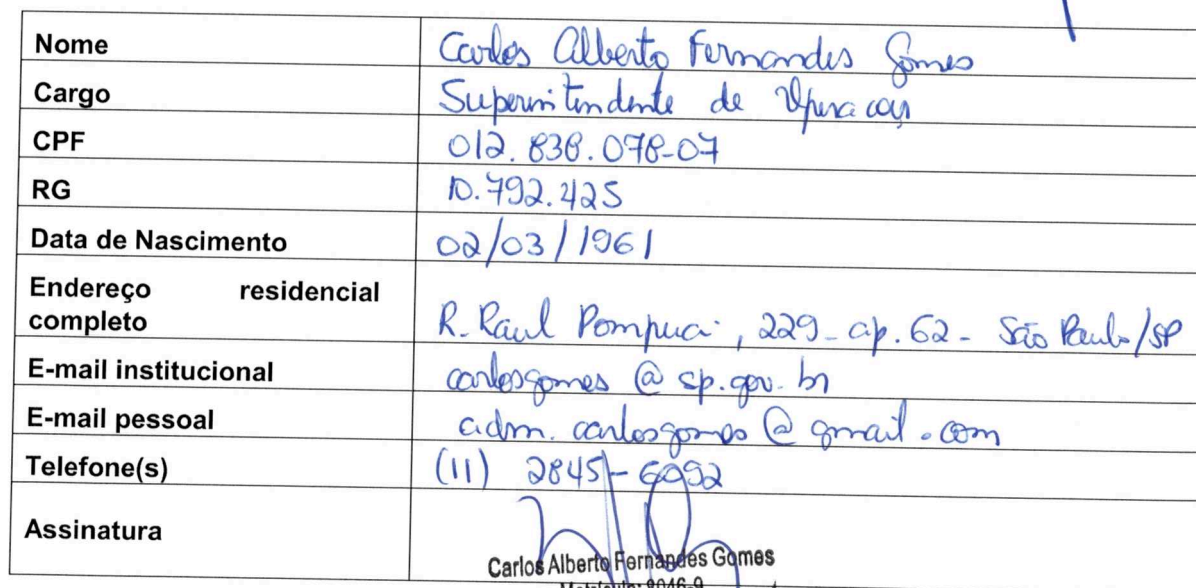 Nome Carlos Alberto Fernandes Gomes
Cargo Superintendente de Operações
CPF 012.838.078-07
RG 10.792.425
Data de Nascimento 02/03/1961
Endereço residencial
completo R. Raul Pompeia, 229 - ap. 62 - São Paulo/SP
E-mail institucional carlosgomes@sp.gov.br
E-mail pessoal adm.carlosgomes@gmail.com
Telefone(s) (11) 2845-6092
Assinatura
Carlos Alberto Fernandes Gomes
Matrícula: 8046-9